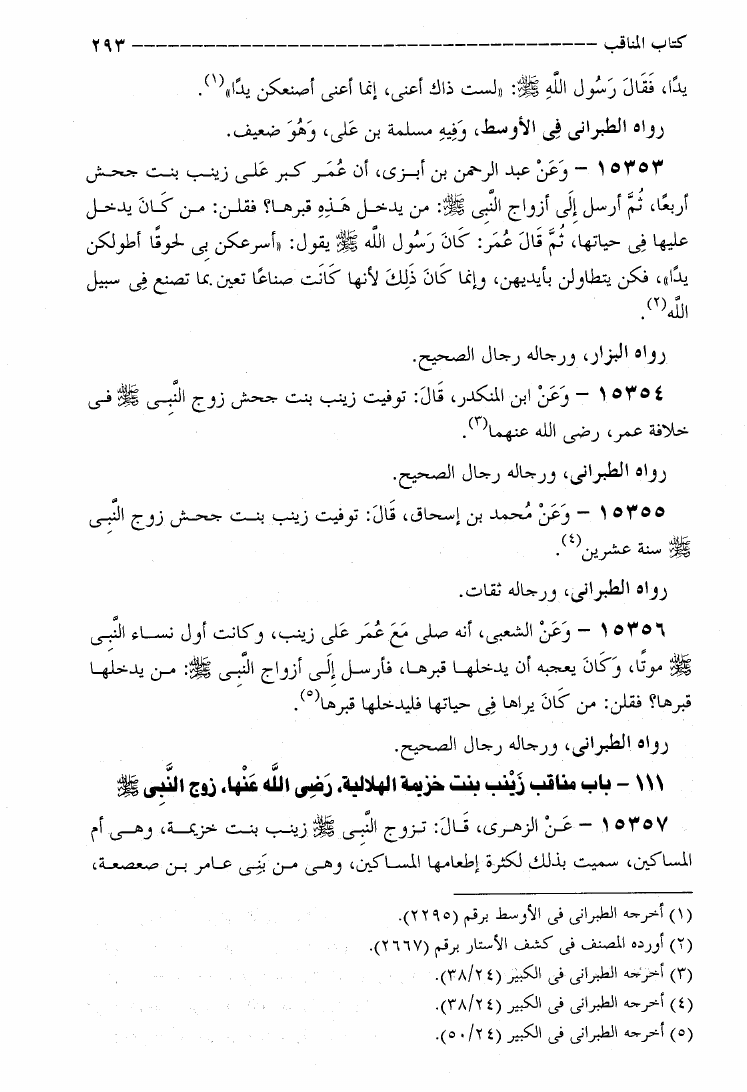 كتاب المناقب ـــــــــــــــــــــــــــــــــــــــــــــــــــــــ ٢٩٣
يدًا، فَقَالَ رَسُول اللَّهِ ﷺ: «لست ذاك أعنى، إنما أعنى أصنعكن يدًا»(١).
رواه الطبرانى فِى الأوسط، وَفِيهِ مسلمة بن على، وَهُوَ ضعيف.
١٥٣٥٣ – وَعَنْ عبد الرحمن بن أبزى، أن عُمَر كبر عَلى زينب بنت جحش
أربعًا، ثُمَّ أرسل إِلَى أزواج النَّبِى ﷺ: من يدخل هَذِهِ قبرها؟ فقلن: من كَانَ يدخل
عليها فِى حياتها، ثُمَّ قَالَ عُمَر: كَانَ رَسُول الله ﷺ يقول: «أسرعكن بى لحوقًا أطولكن
يدًا»، فكن يتطاولن بأيديهن، وإنما كَانَ ذَلِكَ لأنها كَانَت صناعًا تعين بما تصنع فِى سبيل
اللَّه(٢).
رواه البزار، ورجاله رجال الصحيح.
١٥٣٥٤ – وَعَنْ ابن المنكدر، قَالَ: توفيت زينب بنت جحش زوج النَّبِى ﷺ فى
خلافة عمر، رضى الله عنهما(٣).
رواه الطبرانى، ورجاله رجال الصحيح.
١٥٣٥٥ – وَعَنْ مُحمد بن إسحاق، قَالَ: توفيت زينب بنت جحش زوج النَّبِى
ﷺ سنة عشرين(٤).
رواه الطبرانى، ورجاله ثقات.
١٥٣٥٦ – وَعَنْ الشعبى، أنه صلى مَعَ عُمَر عَلى زينب، وكانت أول نساء النَّبِى
ﷺ موتًا، وَكَانَ يعجبه أن يدخلها قبرها، فأرسل إِلَى أزواج النَّبِى ﷺ: من يدخلها
قبرها؟ فقلن: من كَانَ يراها فِى حياتها فليدخلها قبرها(٥).
رواه الطبرانى، ورجاله رجال الصحيح.
١١١ – باب مناقب زَيْنب بنت خزيمة الهلالية، رَضِى اللَّه عَنْها، زوج النَّبِى ﷺ
١٥٣٥٧ – عَنْ الزهرى، قَالَ: تزوج النَّبِى ﷺ زينب بنت خزيمة، وهى أم
المساكين، سميت بذلك لكثرة إطعامها المساكين، وهى من بَنِى عامر بن صعصعة،
(١) أخرجه الطبرانى فى الأوسط برقم (٢٢٩٥).
(٢) أورده المصنف فى كشف الأستار برقم (٢٦٦٧).
(٣) أخرجه الطبرانى فى الكبير (٣٨/٢٤).
(٤) أخرجه الطبرانى فى الكبير (٣٨/٢٤).
(٥) أخرجه الطبرانى فى الكبير (٥٠/٢٤).